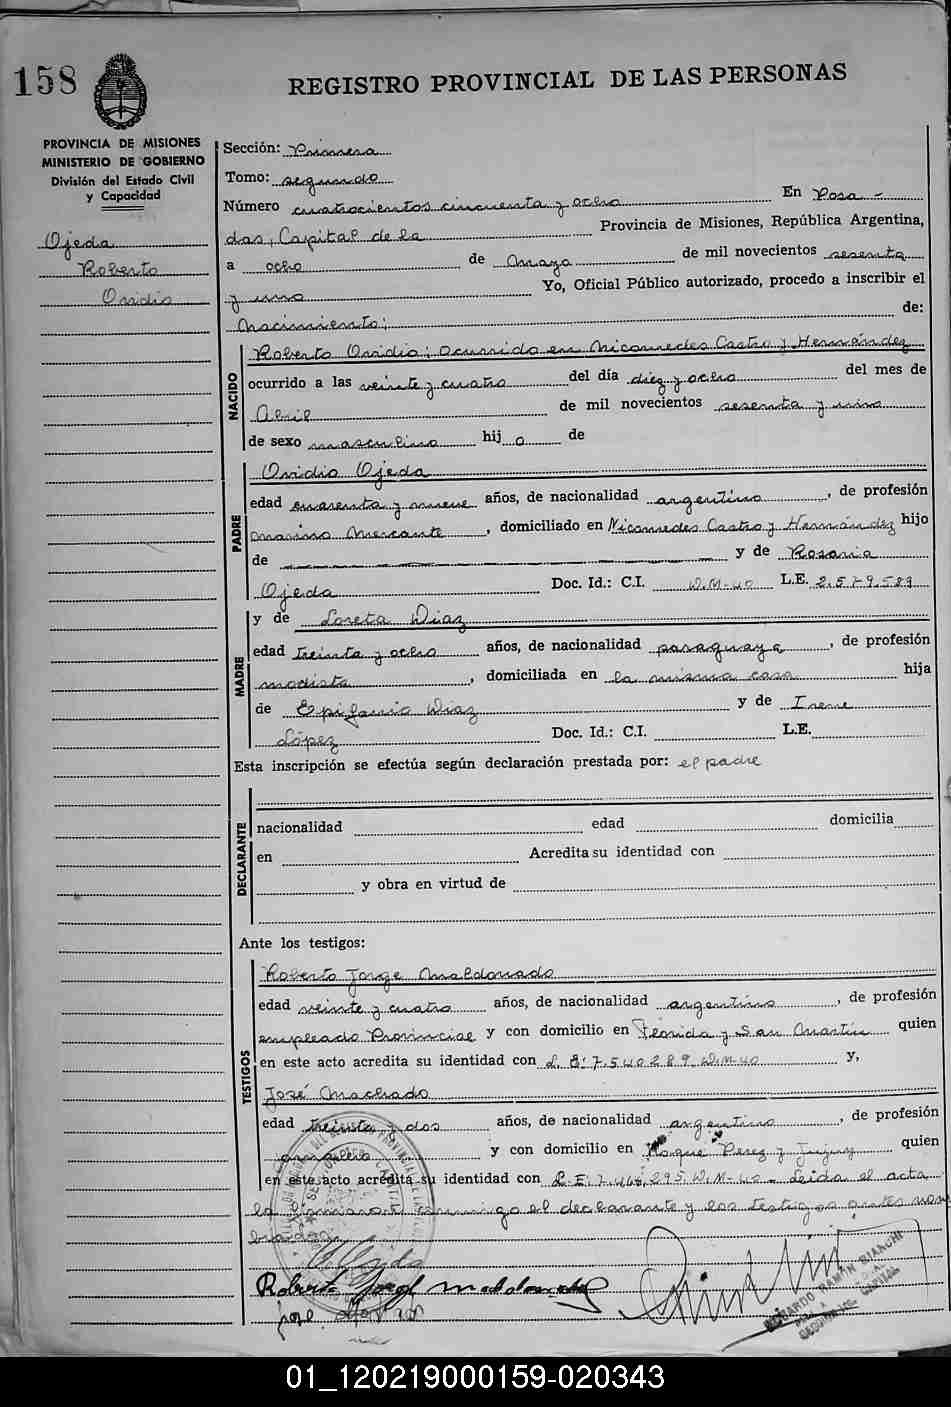 158
REGISTRO PROVINCIAL DE LAS PERSONAS
PROVINCIA DE MISIONES
MINISTERIO DE GOBIERNO
División del Estado Civil
y Capacidad
Ojeda
Roberto
Ovidio
Sección: Primera
Tomo: segundo
Número cuatrocientos cincuenta y ocho En Posa-
das, Capital de la Provincia de Misiones, República Argentina,
a ocho de Mayo de mil novecientos sesenta
y uno Yo, Oficial Público autorizado, procedo a inscribir el
Nacimiento; de:
NACIDO
Roberto Ovidio; ocurrido en Nicomedes Castro y Hernández
ocurrido a las veinte y cuatro del día diez y ocho del mes de
Abril de mil novecientos sesenta y uno
de sexo masculino hijo de
PADRE
Ovidio Ojeda
edad cuarenta y nueve años, de nacionalidad argentino, de profesión
marino Mercante, domiciliado en Nicomedes Castro y Hernández hijo
de y de Rosaria
Ojeda Doc. Id.: C.I. D.M-40 L.E. 2.579.589
MADRE
y de Loreta Diaz
edad treinta y ocho años, de nacionalidad paraguaya, de profesión
modista, domiciliada en la misma casa hija
de Epifanio Diaz y de Irene
López Doc. Id.: C.I. L.E.
Esta inscripción se efectúa según declaración prestada por: el padre
DECLARANTE
nacionalidad edad domicilia
en Acredita su identidad con
y obra en virtud de
Ante los testigos:
TESTIGOS
Roberto Jorge Maldonado
edad veinte y cuatro años, de nacionalidad argentino, de profesión
empleado Provincial y con domicilio en Florida y San Martín quien
en este acto acredita su identidad con L.E: 7.540.289. D.M-40 y,
José Machado
edad treinta y dos años, de nacionalidad argentino, de profesión
y con domicilio en Roque Perez y Jujuy quien
en este acto acredita su identidad con L.E. 7.468.295. D.M-40. Leida el acta
la firmaron conmigo el declarante y los testigos antes nom
brados
Roberto Jorge Maldonado
Jose
RAMÓN BIANCHI
CAPITAL
01_120219000159-020343